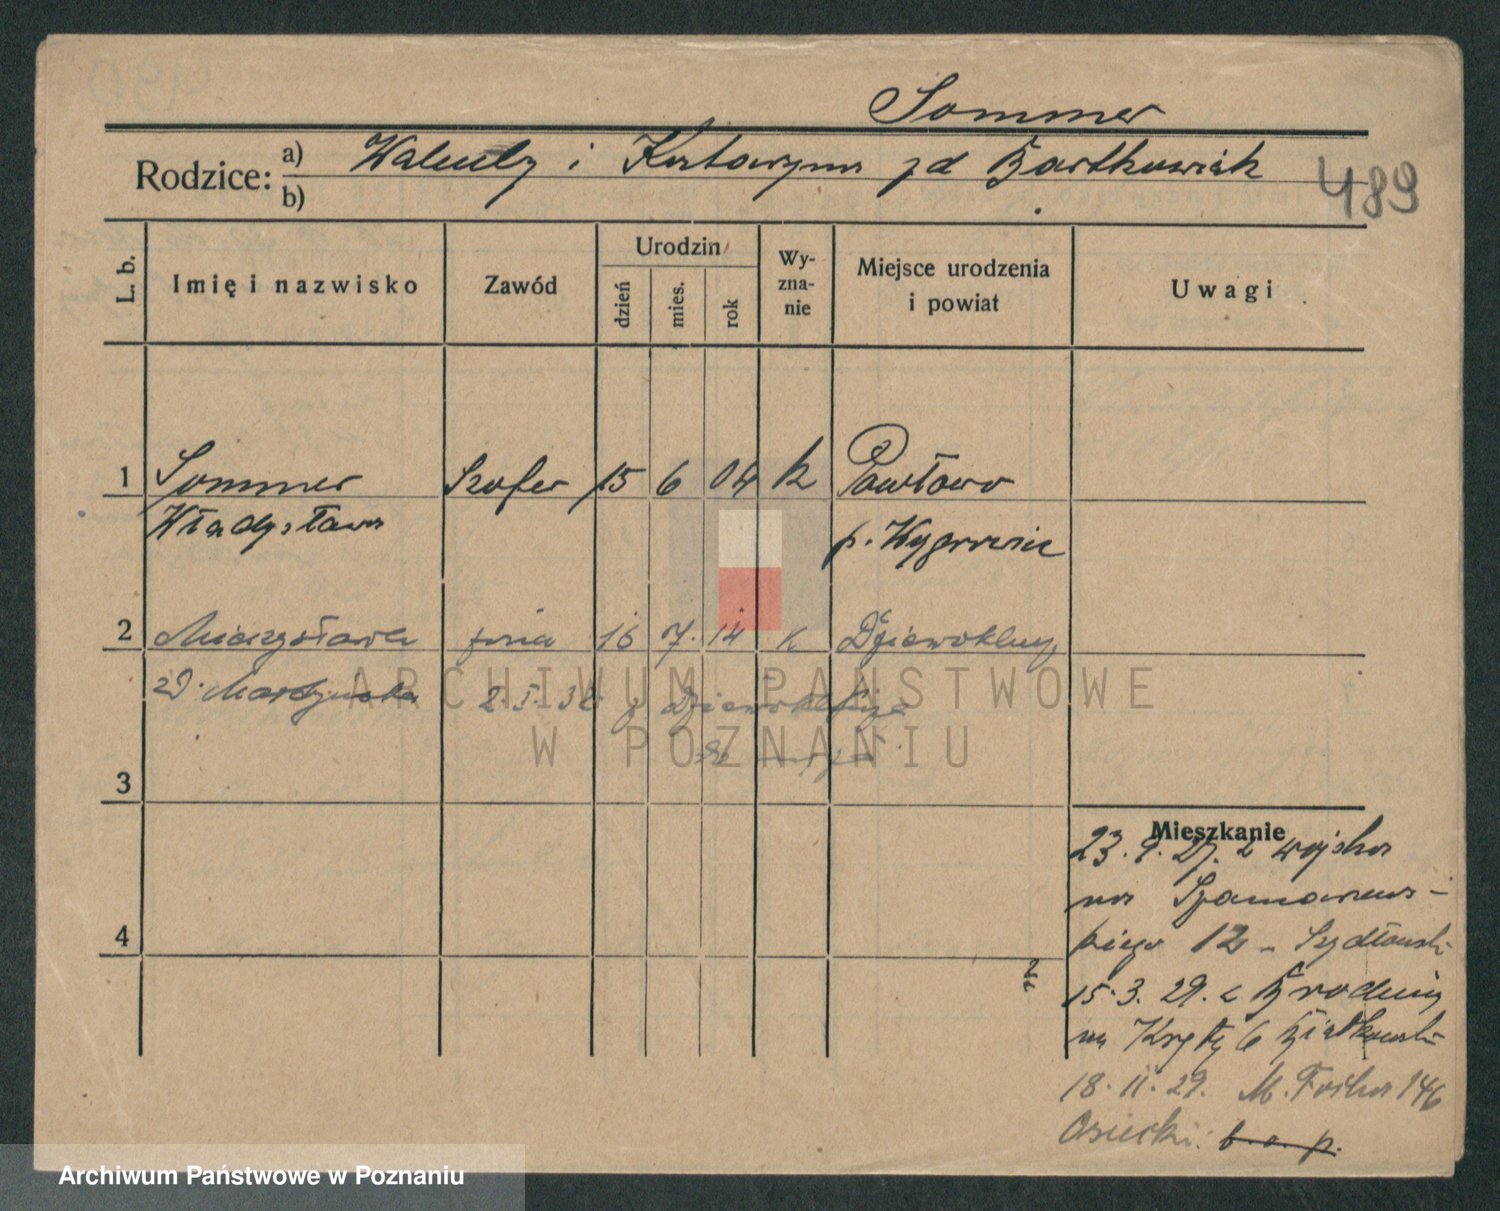 Sommer
Rodzice: a) Walenty i Katarzyna zd Bartkowiak
b)
489
L. b.
Imię i nazwisko
Zawód
Urodzin
dzień
mies.
rok
Wy-
zna-
nie
Miejsce urodzenia
i powiat
Uwagi
1 Sommer Szofer 15 6 04 k Pawłowo
Władysław p. Wągrowiec
2 Mieczysława żona 16 7. 14 k Dziewoklucz
zd. Martyńska 2.5.36 z Dziewoklucza
3
4
Mieszkanie
23.9.27. z wojska
na Szamarzews-
kiego 12 - Szydłowski
15.3.29. z
na 6
18.11.29. M. Focha 146
Osiecki. b. o. p.
ARCHIWUM PAŃSTWOWE
W POZNANIU
Archiwum Państwowe w Poznaniu